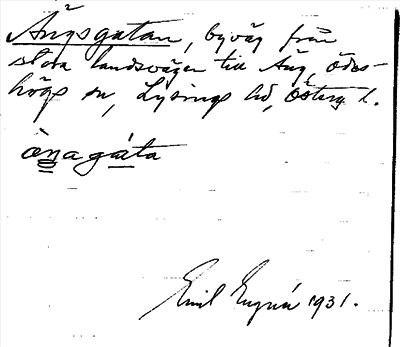 Ängsgatan, byväg från
stora landsvägen till Äng, Ödes-
högs sn, Lysings hd, Österg l.
ònagáta
Emil 1931.